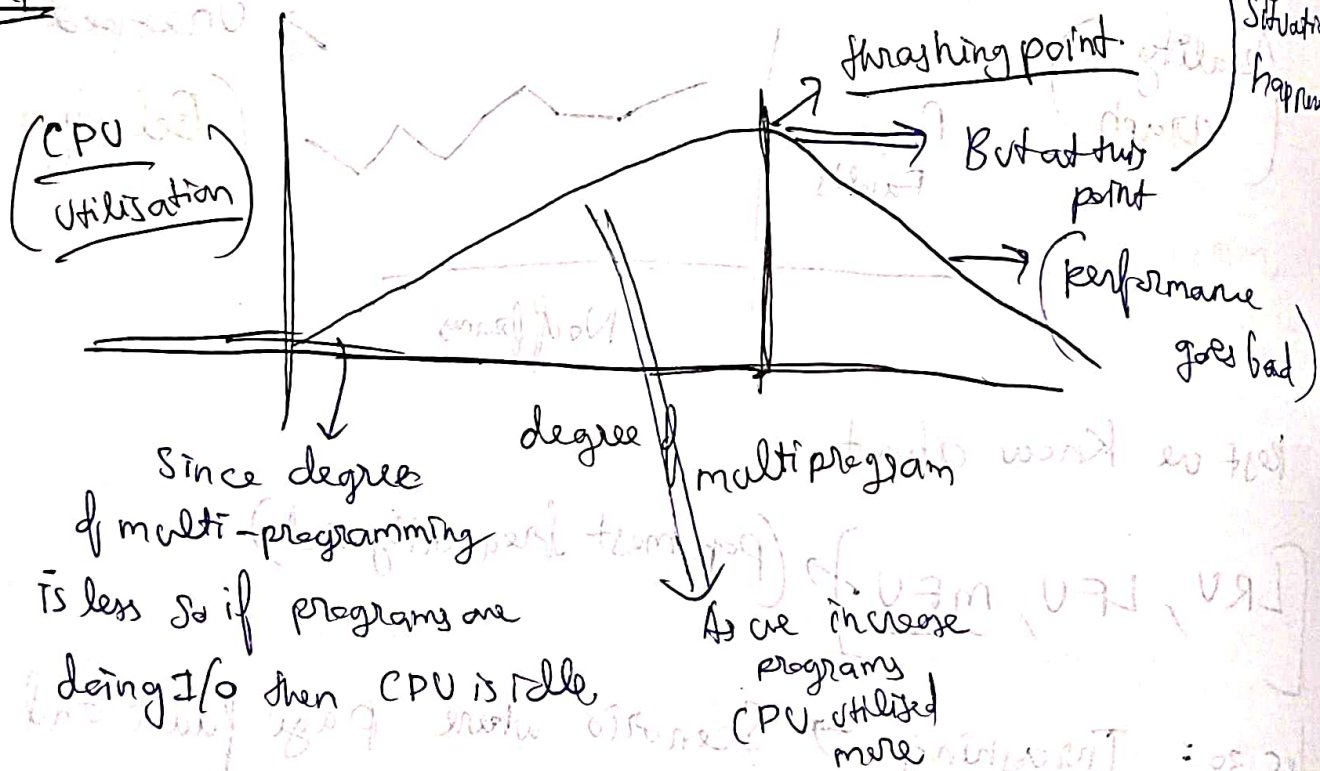 thrashing point.
Situati
happen
(CPU
Utilisation)
But at this
point
(performance
goes bad)
degree of
multiprogram
Since degree
of multi-programming
is less so if programs are
doing I/O then CPU is idle
As we increase
programs
CPU utilised
more